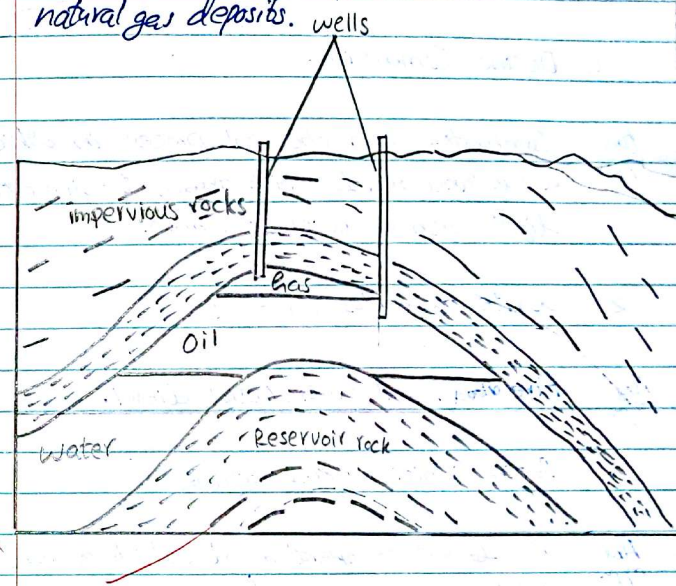 natural gas deposits.
wells
impervious rocks
Gas
Oil
Water
Reservoir rock